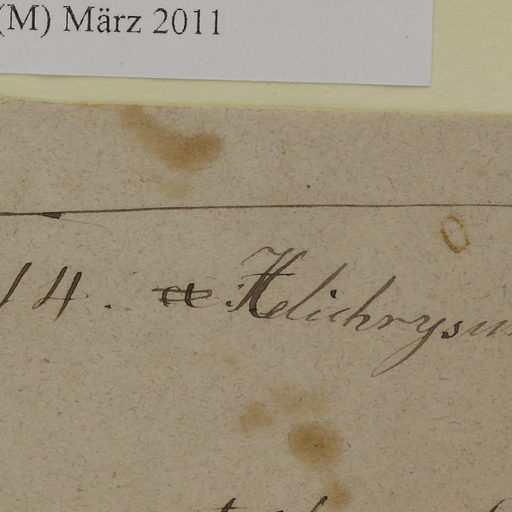 (M) März 2011
14. Helichrysu